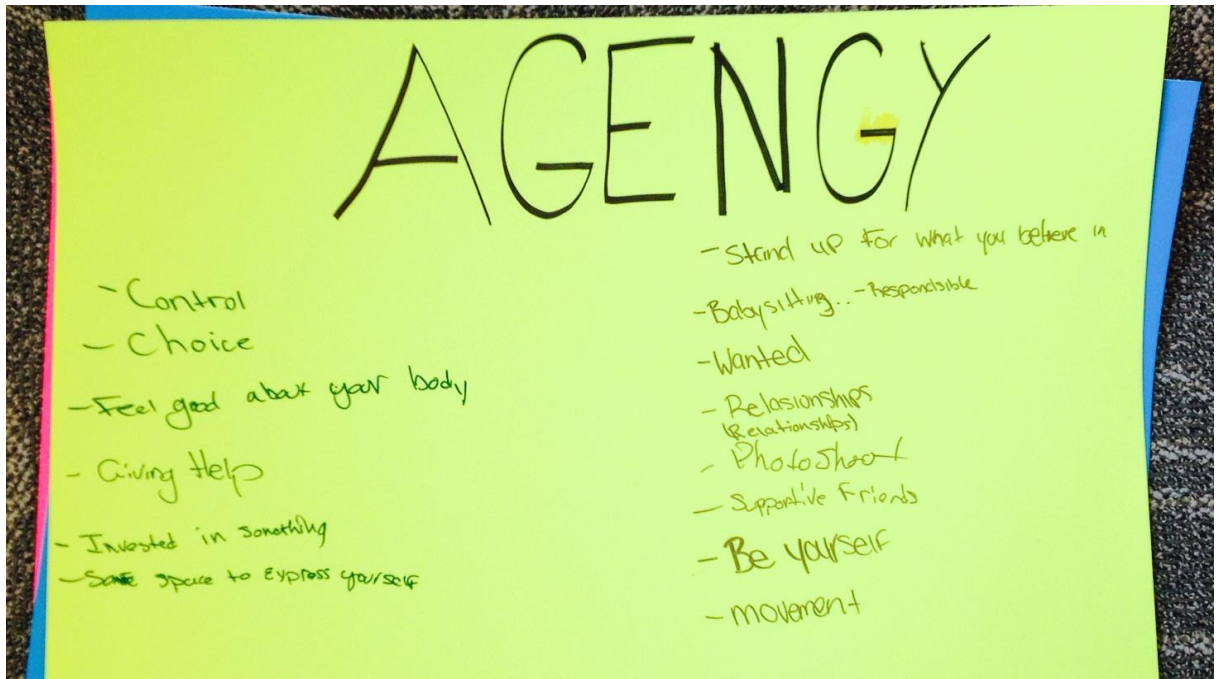 AGENGY
- Control
- Choice
- Feel good about your body
- Giving Help
- Invested in something
- Safe space to express yourself
- Stand up for what you believe in
- Babysitting.. - Respondsible
- Wanted
- Relasionships
(Relationships)
- Photoshoot
- Supportive Friends
- Be yourself
- movement